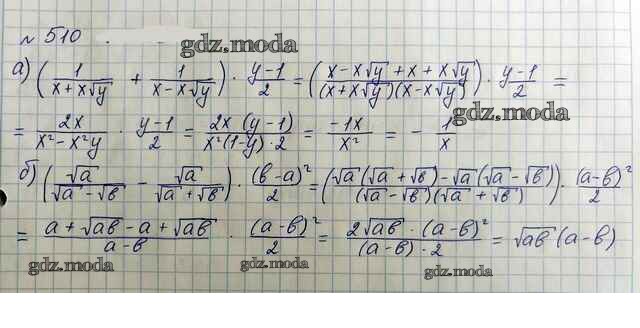 № 510
gdz.moda
а) (1/(x + x√y) + 1/(x - x√y)) · (y-1)/2 = ((x - x√y + x + x√y)/((x + x√y)(x - x√y))) · (y-1)/2 =
gdz.moda
= 2x/(x² - x²y) · (y-1)/2 = (2x (y-1))/(x²(1-y)·2) = -1x/x² = - 1/x
б) (√a/(√a - √b) - √a/(√a + √b)) · (b-a)²/2 = ((√a(√a + √b) - √a(√a - √b))/((√a - √b)(√a + √b))) · (a-b)²/2
= (a + √ab - a + √ab)/(a-b) · (a-b)²/2 = (2√ab · (a-b)²)/((a-b)·2) = √ab (a-b)
gdz.moda gdz.moda gdz.moda